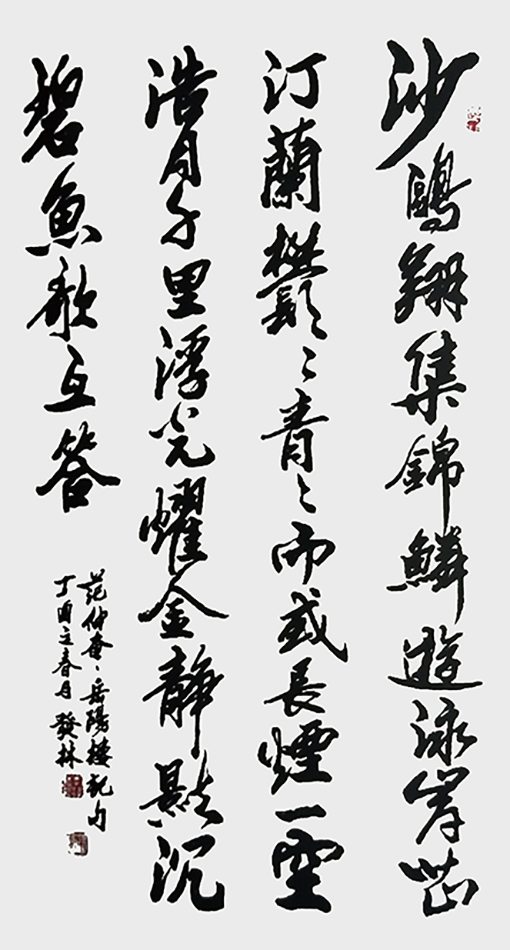 沙鷗翔集錦鱗遊泳岸芷
汀蘭鬱〻青〻而或長煙一空
浩月千里浮光耀金静影沉
碧魚歌互答
范仲淹〻岳陽樓記句
丁酉立春月發林